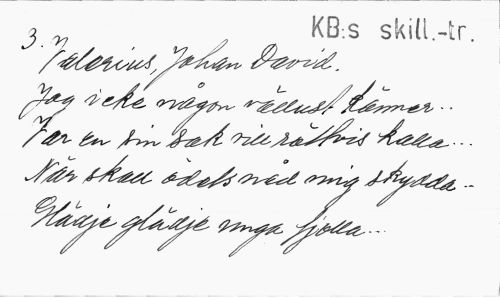 KB:s skill.-tr.
3. Valerius, Johan David.
Jag icke någon vällust känner..
Var en sin sak vill rättvis kalla...
När skall ödets nåd mig skydda..
Glädje glädje unga fjolla...